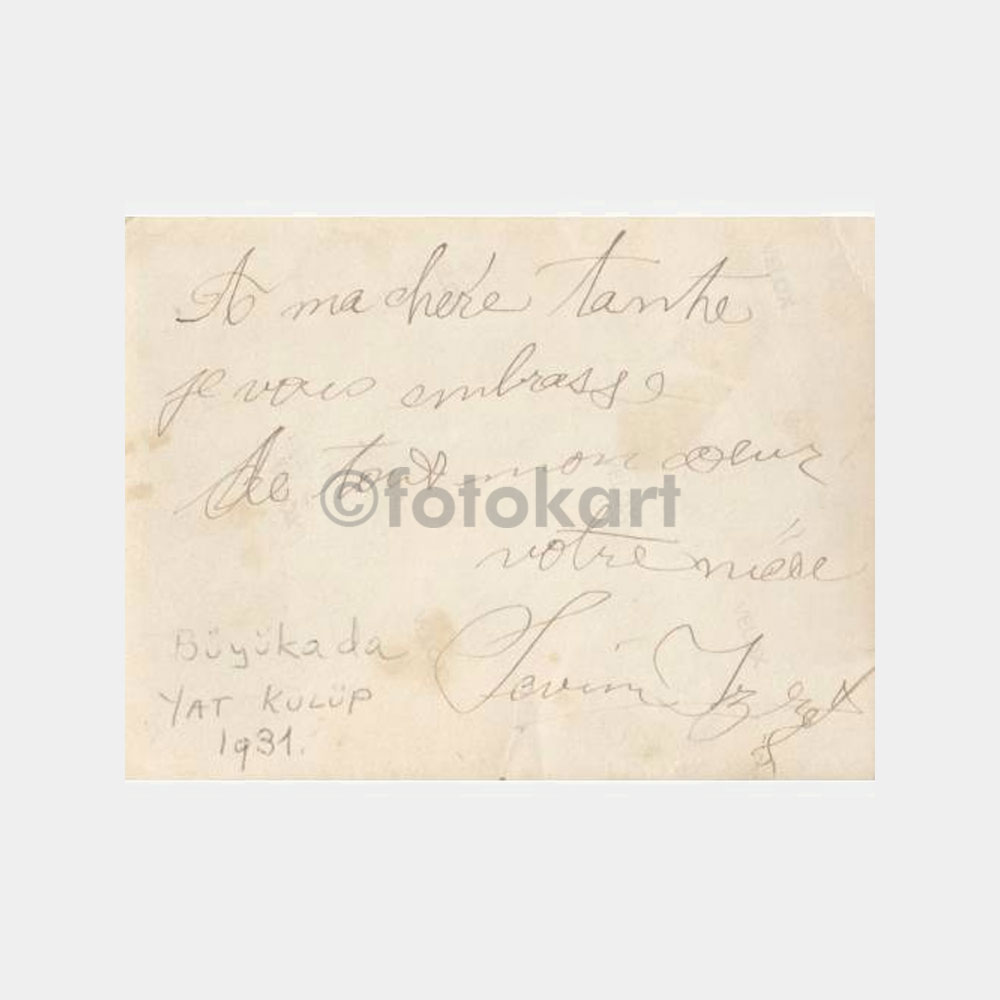 A ma chére tante
je vous embrasse
de tout mon coeur
votre niéce
Sevim Izzet
Büyükada
YAT KULÜP
1931.
©fotokart